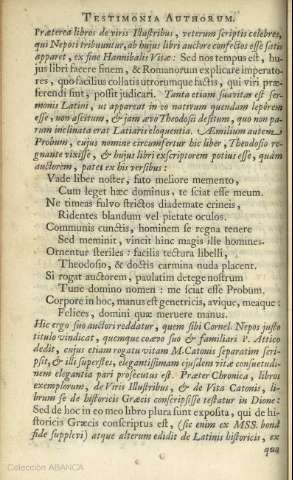 TESTIMONIA AUTHORUM.
Præterea libros de viris Illustribus, veterum scriptis celebres,
qui Nepoti tribuuntur, ab hujus libri auctore confectos esse satis
apparet, ex fine Hannibalis Vitæ: Sed nos tempus est, hu-
jus libri facere finem, & Romanorum explicare imperato-
res, quo facilius collatis utrorumque factis, qui viri præ-
ferendi sint, possit judicari. Tanta etiam suavitas est ser-
monis Latini, ut appareat in eo nativum quendam lepórem
esse, non ascitum, & jam ævo Theodosii desitum, quo non pa-
rum inclinata erat Latiaris eloquentia. Æmilium autem
Probum, cujus nomine circumfertur hic liber, Theodosio re-
gnante vixisse, & hujus libri exscriptorem potius esse, quàm
auctorem, patet ex his versibus:
Vade liber noster, fato meliore memento,
Cum leget hæc dominus, te sciat esse meum.
Ne timeas fulvo strictos diademate crineis,
Ridentes blandum vel pietate oculos.
Communis cunctis, hominem se regna tenere
Sed meminit, vincit hinc magis ille homines.
Ornentur steriles: facilis tectura libelli,
Theodosio, & doctis carmina nuda placent.
Si rogat auctorem, paulatim detege nostrum
Tunc domino nomen: me sciat esse Probum.
Corpore in hoc, manus est genetricis, avique, meaque:
Felices, domini quæ meruere manus.
Hic ergo suo auctori reddatur, quem sibi Cornel. Nepos justo
titulo vindicat, quemque coævo suo & familiari P. Attico
dedit, cujus etiam rogatu vitam M. Catonis separatim scri-
psit, & illi superstes, elegantissimam ejusdem vitæ consuetudi-
nem elegantia pari prosecutus est. Præter Chronica, libros
exemplorum, de Viris Illustribus, & de Vita Catonis, li-
brum se de historicis Græcis conscripsisse testatur in Dione:
Sed de hoc in eo meo libro plura sunt exposita, qui de hi-
storicis Græcis conscriptus est, (sic enim ex MSS. bona
fide supplevi) atque alterum edidit de Latinis historicis, ex
qua
Colección ABANCA